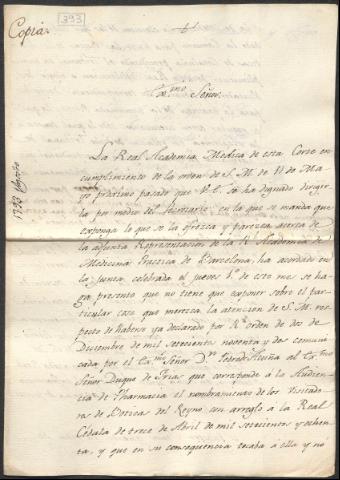 Copia.
393
Exmo Señor.
1793 Agosto
La Real Academia Medica de esta Corte en
cumplimiento de la orden de S. M. de 11 de Ma-
yo próximo pasado que V. E. se ha dignado dirigir-
la por medio del Secretario, en la que se manda que
exponga lo que se la ofrezca y parezca acerca de
la adjunta Representacion de la Rl Academia de
Medicina Practica de Barcelona, ha acordado en
la Junta celebrada el jueves 1º de este mes se ha-
ga presente que no tiene que exponer sobre el par-
ticular cosa que merezca la atencion de S. M. res-
pecto de haberse ya declarado por Rl orden de dos de
Diciembre de mil setecientos noventa y dos comuni-
cada por el Exmo Señor Dn Pedro Acuña al Exmo
Señor Duque de Frias que corresponde a la Audien-
cia de Pharmacia el nombramiento de los Visitado-
res de Boticas del Reyno con arreglo à la Real
Cédula de trece de Abril de mil setecientos y ochen-
ta, y que en su consequencia tocaba a ella y nó